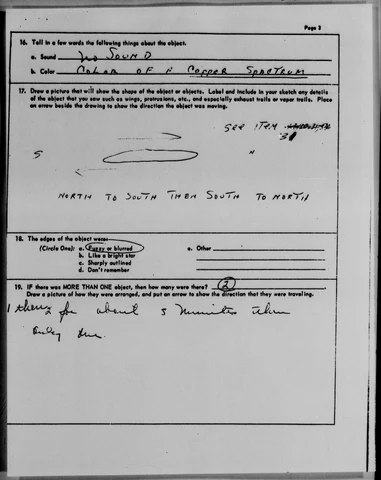 Page 3
16. Tell in a few words the following things about the object.
a. Sound No SOUND
b. Color COLOR OF A COPPER SPECTRUM
17. Draw a picture that will show the shape of the object or objects. Label and include in your sketch any details
of the object that you saw such as wings, protrusions, etc., and especially exhaust trails or vapor trails. Place
an arrow beside the drawing to show the direction the object was moving.
SEE ITEM
31
S N
NORTH TO SOUTH THEN SOUTH TO NORTH
18. The edges of the object were:
(Circle One): a. Fuzzy or blurred e. Other
b. Like a bright star
c. Sharply outlined
d. Don't remember
19. IF there was MORE THAN ONE object, then how many were there? 2
Draw a picture of how they were arranged, and put an arrow to show the direction that they were traveling.
1 then 2 for about 5 minutes then
only one